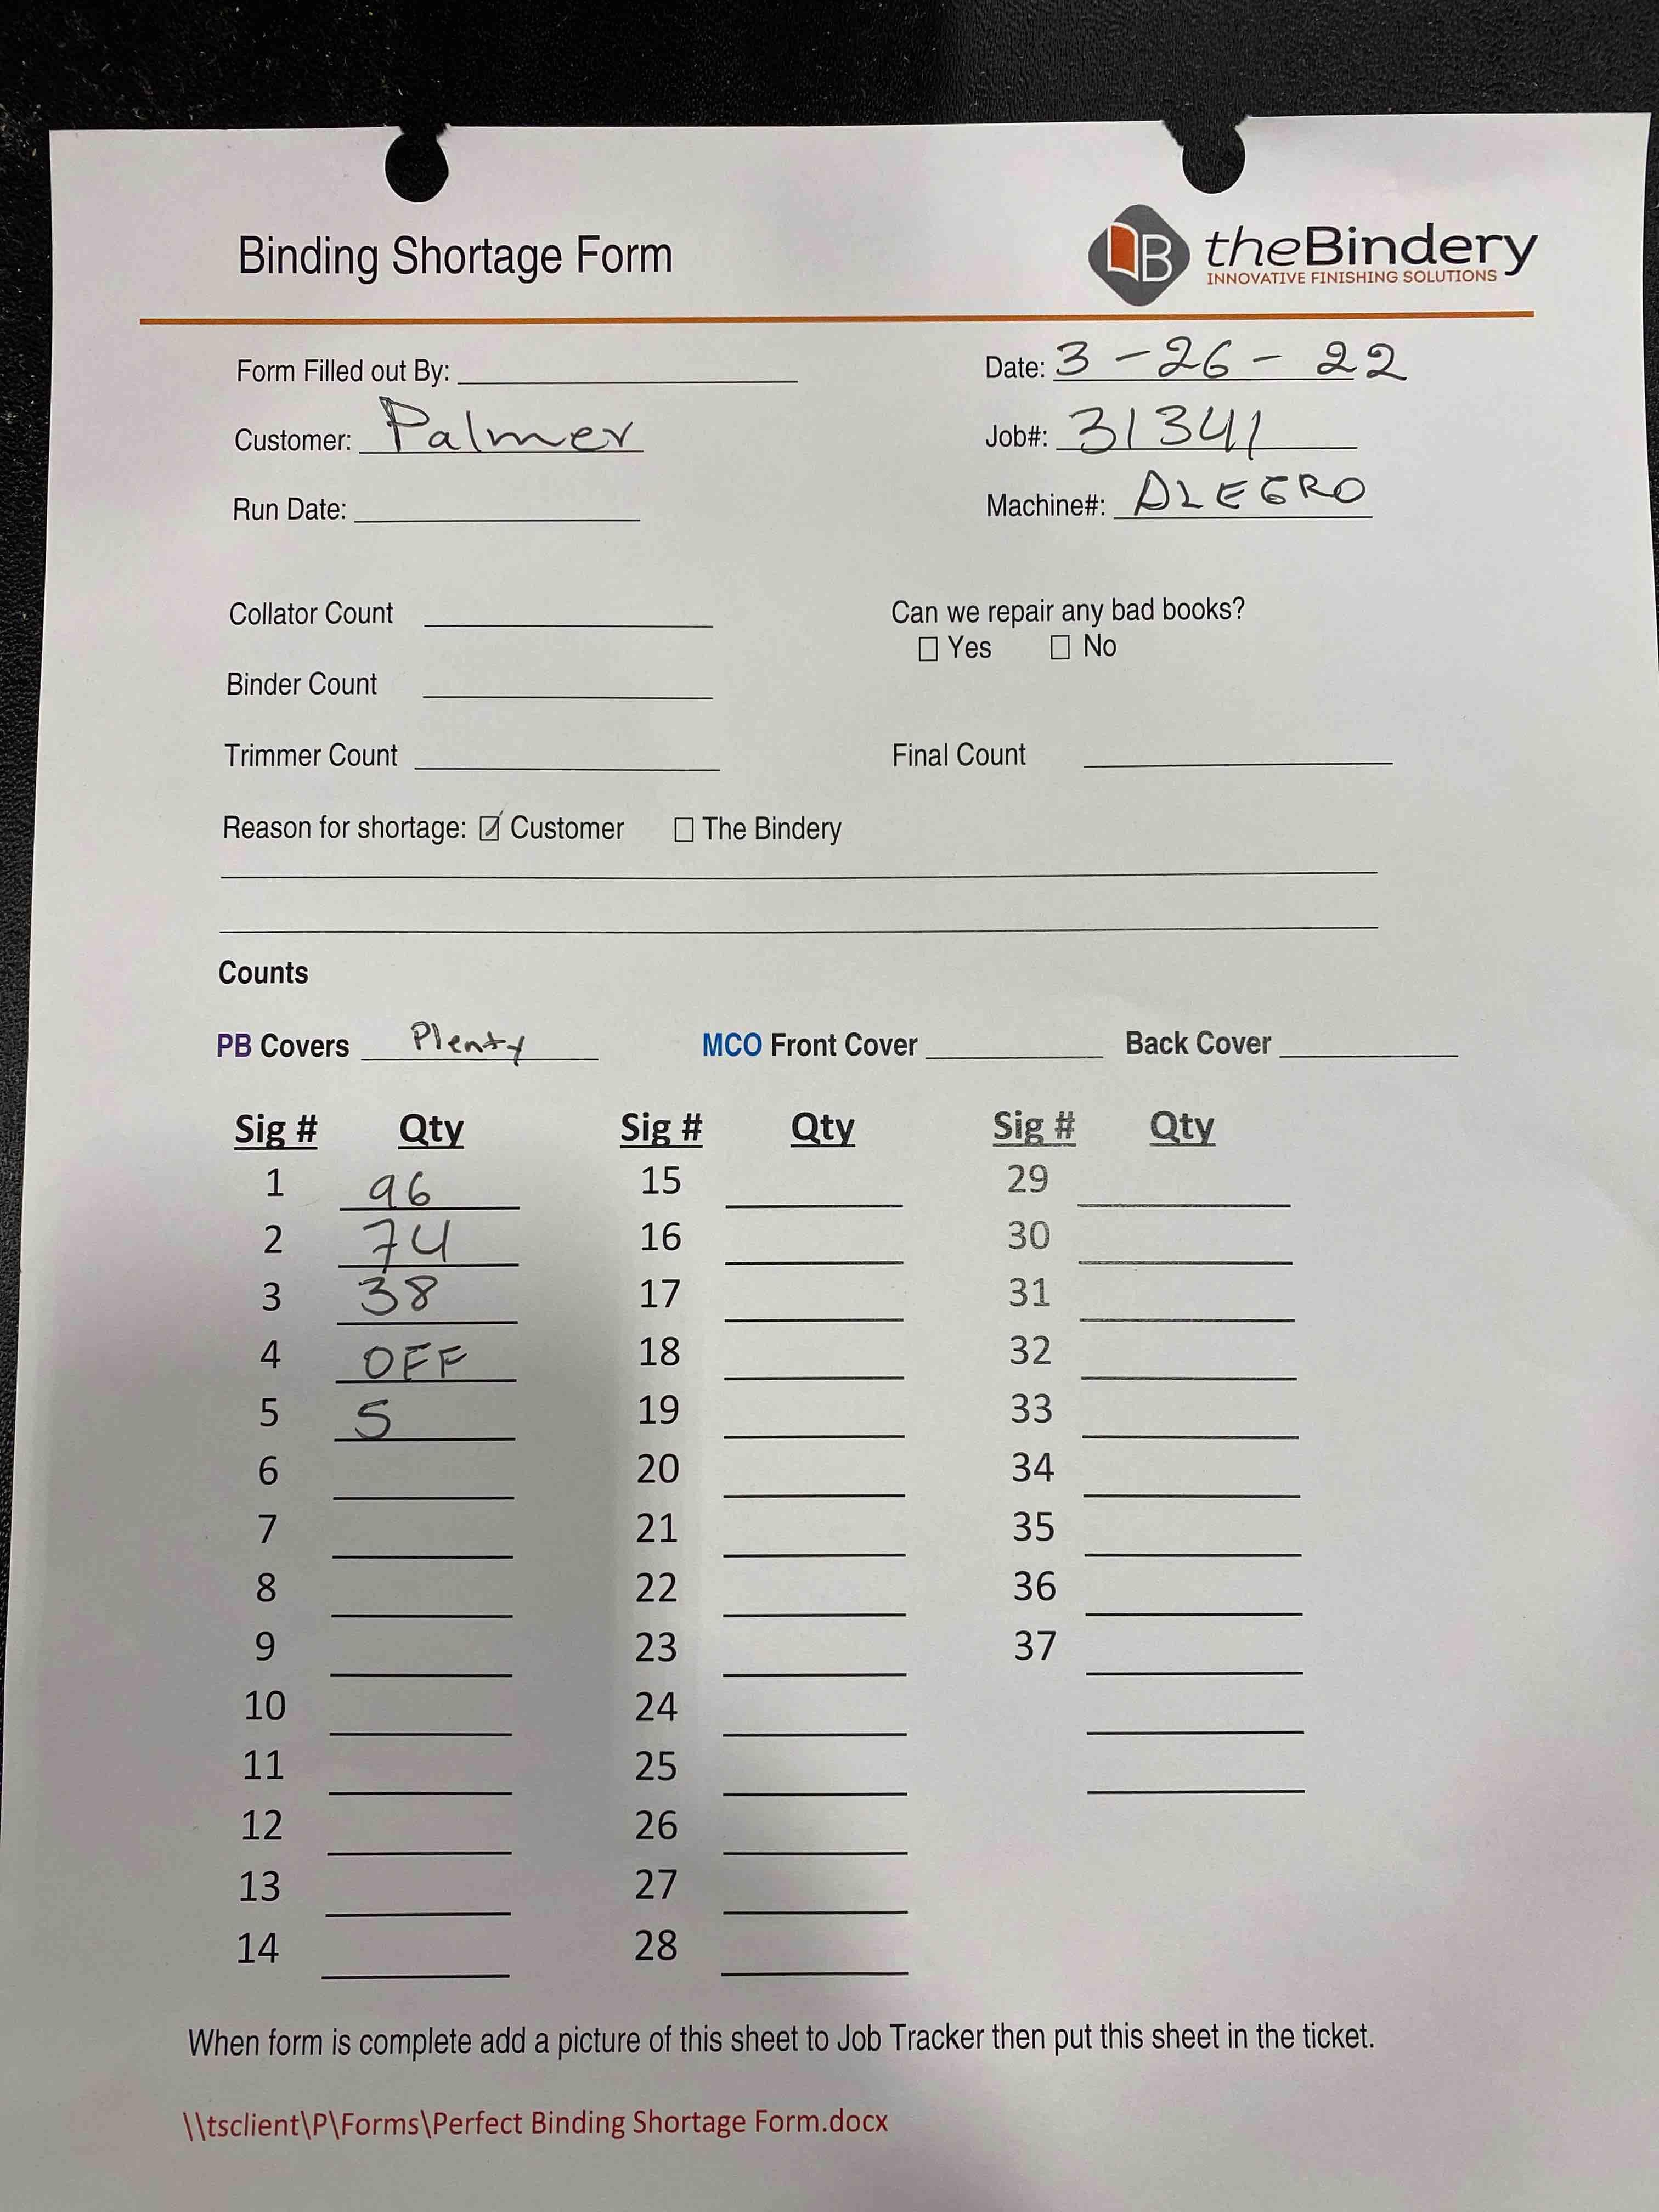 Binding Shortage Form
B theBindery
INNOVATIVE FINISHING SOLUTIONS
Form Filled out By: Date: 3-26-22
Customer: Palmer Job#: 31341
Run Date: Machine#: ALEGRO
Collator Count Can we repair any bad books?
☐ Yes ☐ No
Binder Count
Trimmer Count Final Count
Reason for shortage: ☑ Customer ☐ The Bindery
Counts
PB Covers Plenty MCO Front Cover Back Cover
Sig # Qty Sig # Qty Sig # Qty
1 96 15 29
2 74 16 30
3 38 17 31
4 OFF 18 32
5 5 19 33
6 20 34
7 21 35
8 22 36
9 23 37
10 24
11 25
12 26
13 27
14 28
When form is complete add a picture of this sheet to Job Tracker then put this sheet in the ticket.
\\tsclient\P\Forms\Perfect Binding Shortage Form.docx